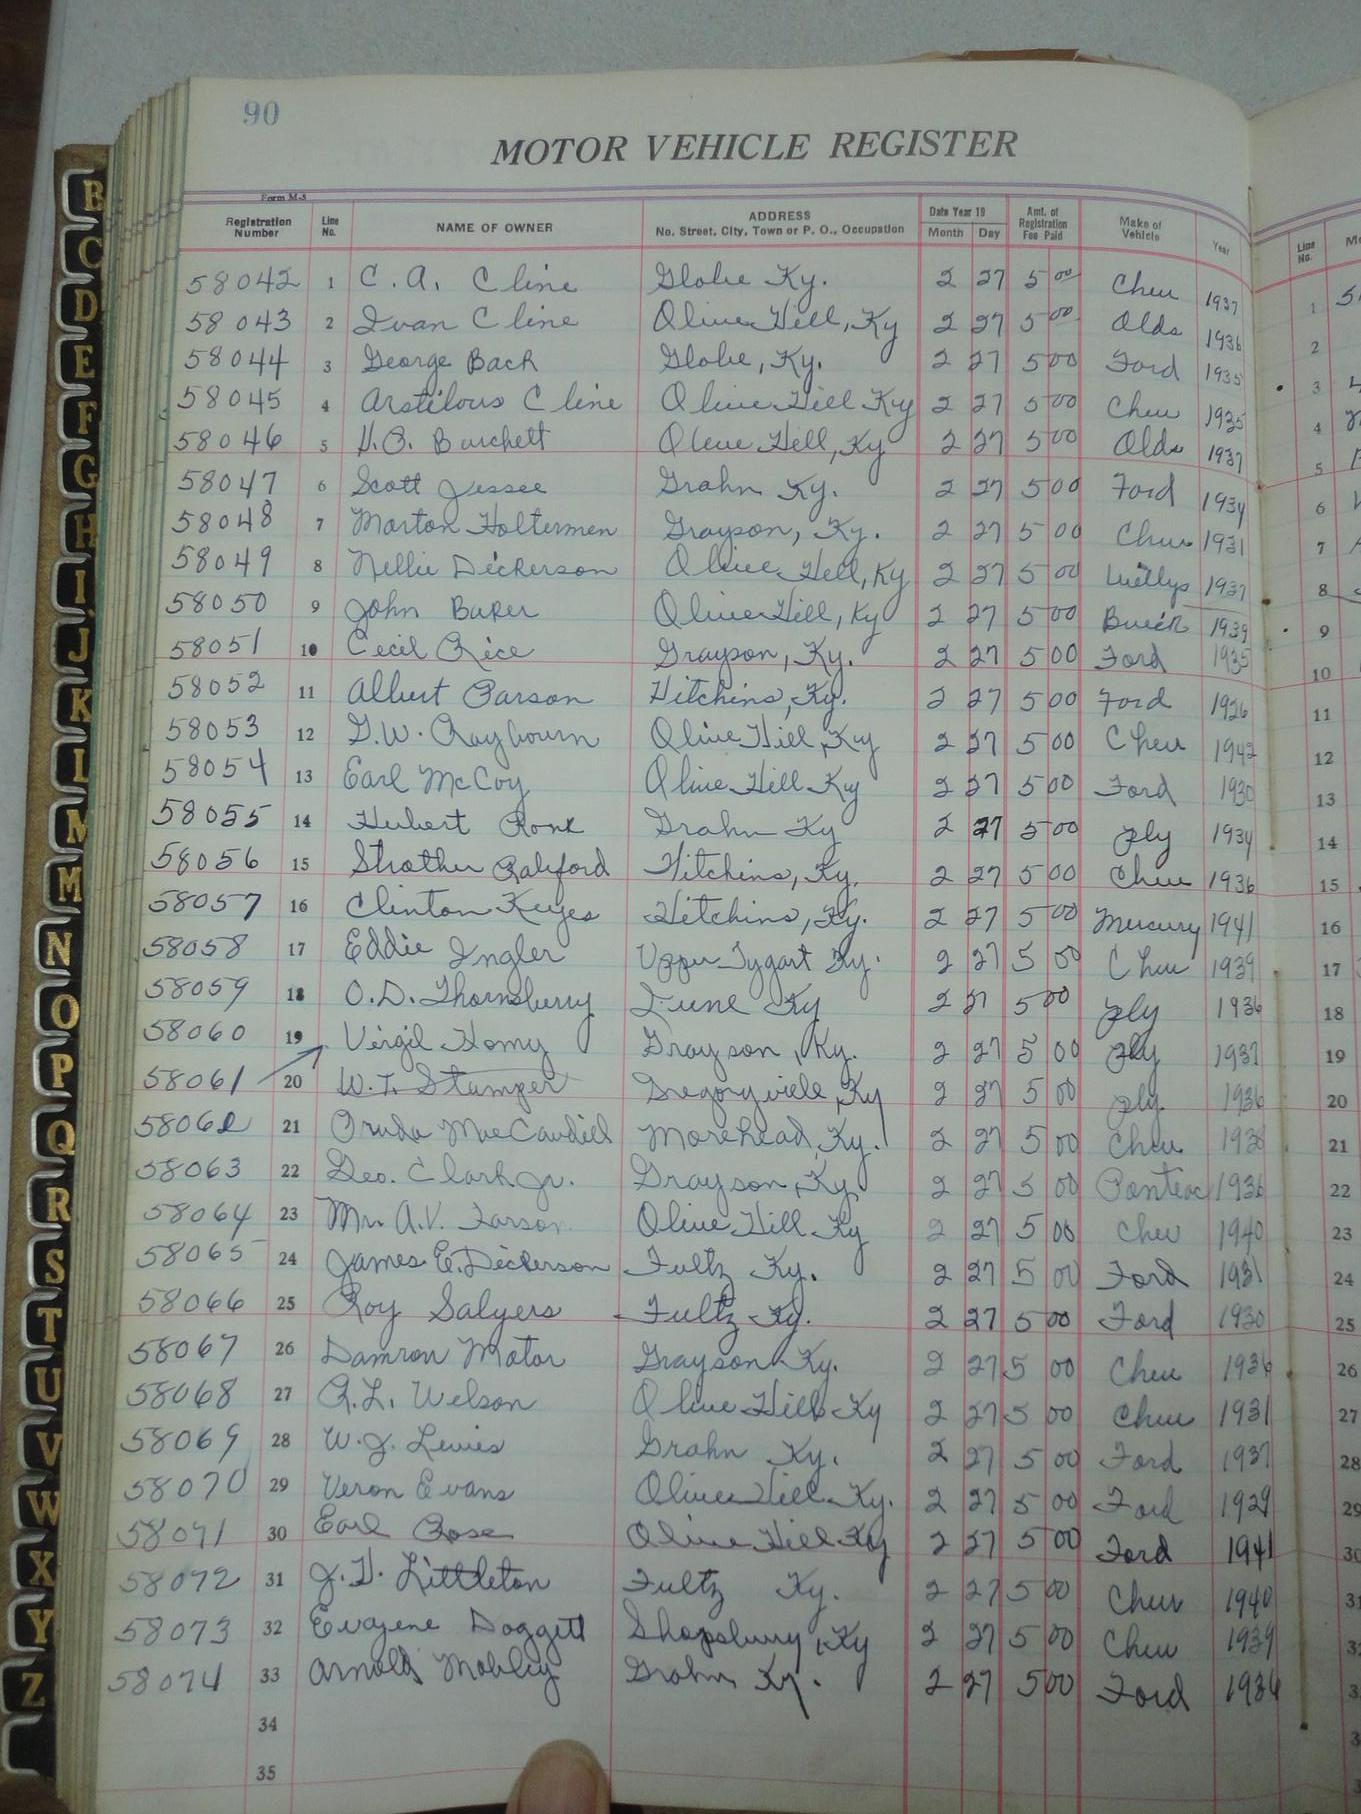 90
MOTOR VEHICLE REGISTER
Form M-8
Registration Number Line No. NAME OF OWNER ADDRESS No. Street, City, Town or P. O., Occupation Date Year 19 Month Day Amt. of Registration Fee Paid Make of Vehicle Year Line No.
58042 1 C. A. Cline Globe Ky. 2 27 5 00 Chev 1937 1
58043 2 Ivan Cline Olive Hill, Ky 2 27 5 00 Olds 1936 2
58044 3 George Back Globe, Ky. 2 27 5 00 Ford 1935 3
58045 4 Cline Olive Hill Ky 2 27 5 00 Chev 1935 4
58046 5 Burchett Olive Hill, Ky 2 27 5 00 Olds 1937 5
58047 6 Scott Jessee Grahn Ky. 2 27 5 00 Ford 1934 6
58048 7 Marton Holtermen Grayson, Ky. 2 27 5 00 Chev 1931 7
58049 8 Nellie Dickerson Olive Hill, Ky 2 27 5 00 Willys 1937 8
58050 9 John Baker Olive Hill, Ky 2 27 5 00 Buick 1939 9
58051 10 Cecil Rice Grayson, Ky. 2 27 5 00 Ford 1935 10
58052 11 Albert Parson Hitchins, Ky. 2 27 5 00 Ford 1926 11
58053 12 G.W. Raybourn Olive Hill, Ky 2 27 5 00 Chev 1942 12
58054 13 Earl McCoy Olive Hill Ky 2 27 5 00 Ford 1930 13
58055 14 Hubert Ronk Grahn Ky 2 27 5 00 Ply 1934 14
58056 15 Strother Hitchins, Ky. 2 27 5 00 Chev 1936 15
58057 16 Clinton Keyes Hitchins, Ky. 2 27 5 00 Mercury 1941 16
58058 17 Eddie Ingler Upper Tygart Ky. 2 27 5 00 Chev 1939 17
58059 18 O.D. Thornsburry Ky 2 27 5 00 Ply 1936 18
58060 19 Virgil Grayson, Ky. 2 27 5 00 Ply 1937 19
58061 20 W.T. Stamper Gregoryville, Ky 2 27 5 00 Ply. 1936 20
58062 21 MacCaudill Morehead, Ky. 2 27 5 00 Chev 1938 21
58063 22 Geo. Clark Jr. Grayson, Ky. 2 27 5 00 Pontiac 1936 22
58064 23 Mr. A.V. Olive Hill Ky 2 27 5 00 Chev 1940 23
58065 24 James E. Dickerson Fultz Ky. 2 27 5 00 Ford 1931 24
58066 25 Roy Salyers Fultz Ky. 2 27 5 00 Ford 1930 25
58067 26 Damron Motor Grayson Ky. 2 27 5 00 Chev 1936 26
58068 27 R.L. Welson Olive Hill Ky 2 27 5 00 Chev 1931 27
58069 28 W.J. Lewis Grahn Ky. 2 27 5 00 Ford 1937 28
58070 29 Veron Evans Olive Hill Ky. 2 27 5 00 Ford 1929 29
58071 30 Earl Rose Olive Hill Ky 2 27 5 00 Ford 1941 30
58072 31 J.H. Littleton Fultz Ky. 2 27 5 00 Chev 1940
58073 32 Eugene Doggett Ky 2 27 5 00 Chev 1939
58074 33 Arnold Mobley Grahn Ky. 2 27 5 00 Ford 1936
34
35
B
C
D
E
F
G
H
I
J
K
L
M
M
N
O
P
Q
R
S
T
U
V
W
X
Y
Z